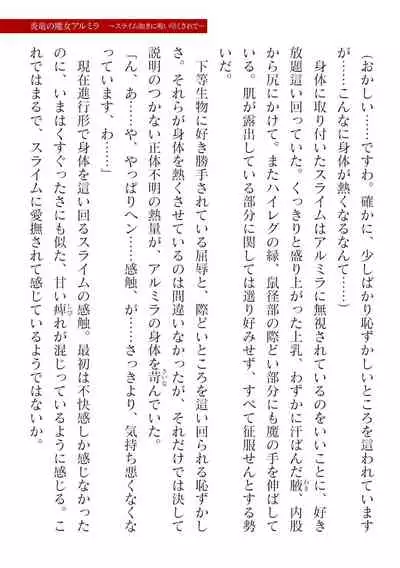 炎竜の魔女アルミラ　～スライム如きに喰い尽くされて～
（おかしい……ですわ。確かに、少しばかり恥ずかしいところを這われています
が……こんなに身体が熱くなるなんて……）
　身体に取り付いたスライムはアルミラに無視されているのをいいことに、好き
放題這い回っていた。くっきりと盛り上がった上乳、わずかに汗ばんだ腋、内股
から尻にかけて。またハイレグの縁、鼠径部の際どい部分にも魔の手を伸ばして
いる。肌が露出している部分に関しては選り好みせず、すべて征服せんとする勢
いだ。
　下等生物に好き勝手されている屈辱と、際どいところを這い回られる恥ずかし
さ。それらが身体を熱くさせているのは間違いなかったが、それだけでは決して
説明のつかない正体不明の熱量が、アルミラの身体を苛んでいた。
「ん、あ……や、やっぱりヘン……感触、が……さっきより、気持ち悪くなくな
っています、わ……」
　現在進行形で身体を這い回るスライムの感触。最初は不快感しか感じなかった
のに、いまはくすぐったさにも似た、甘い痺れが混じっているように感じる。こ
れではまるで、スライムに愛撫されて感じているようではないか。